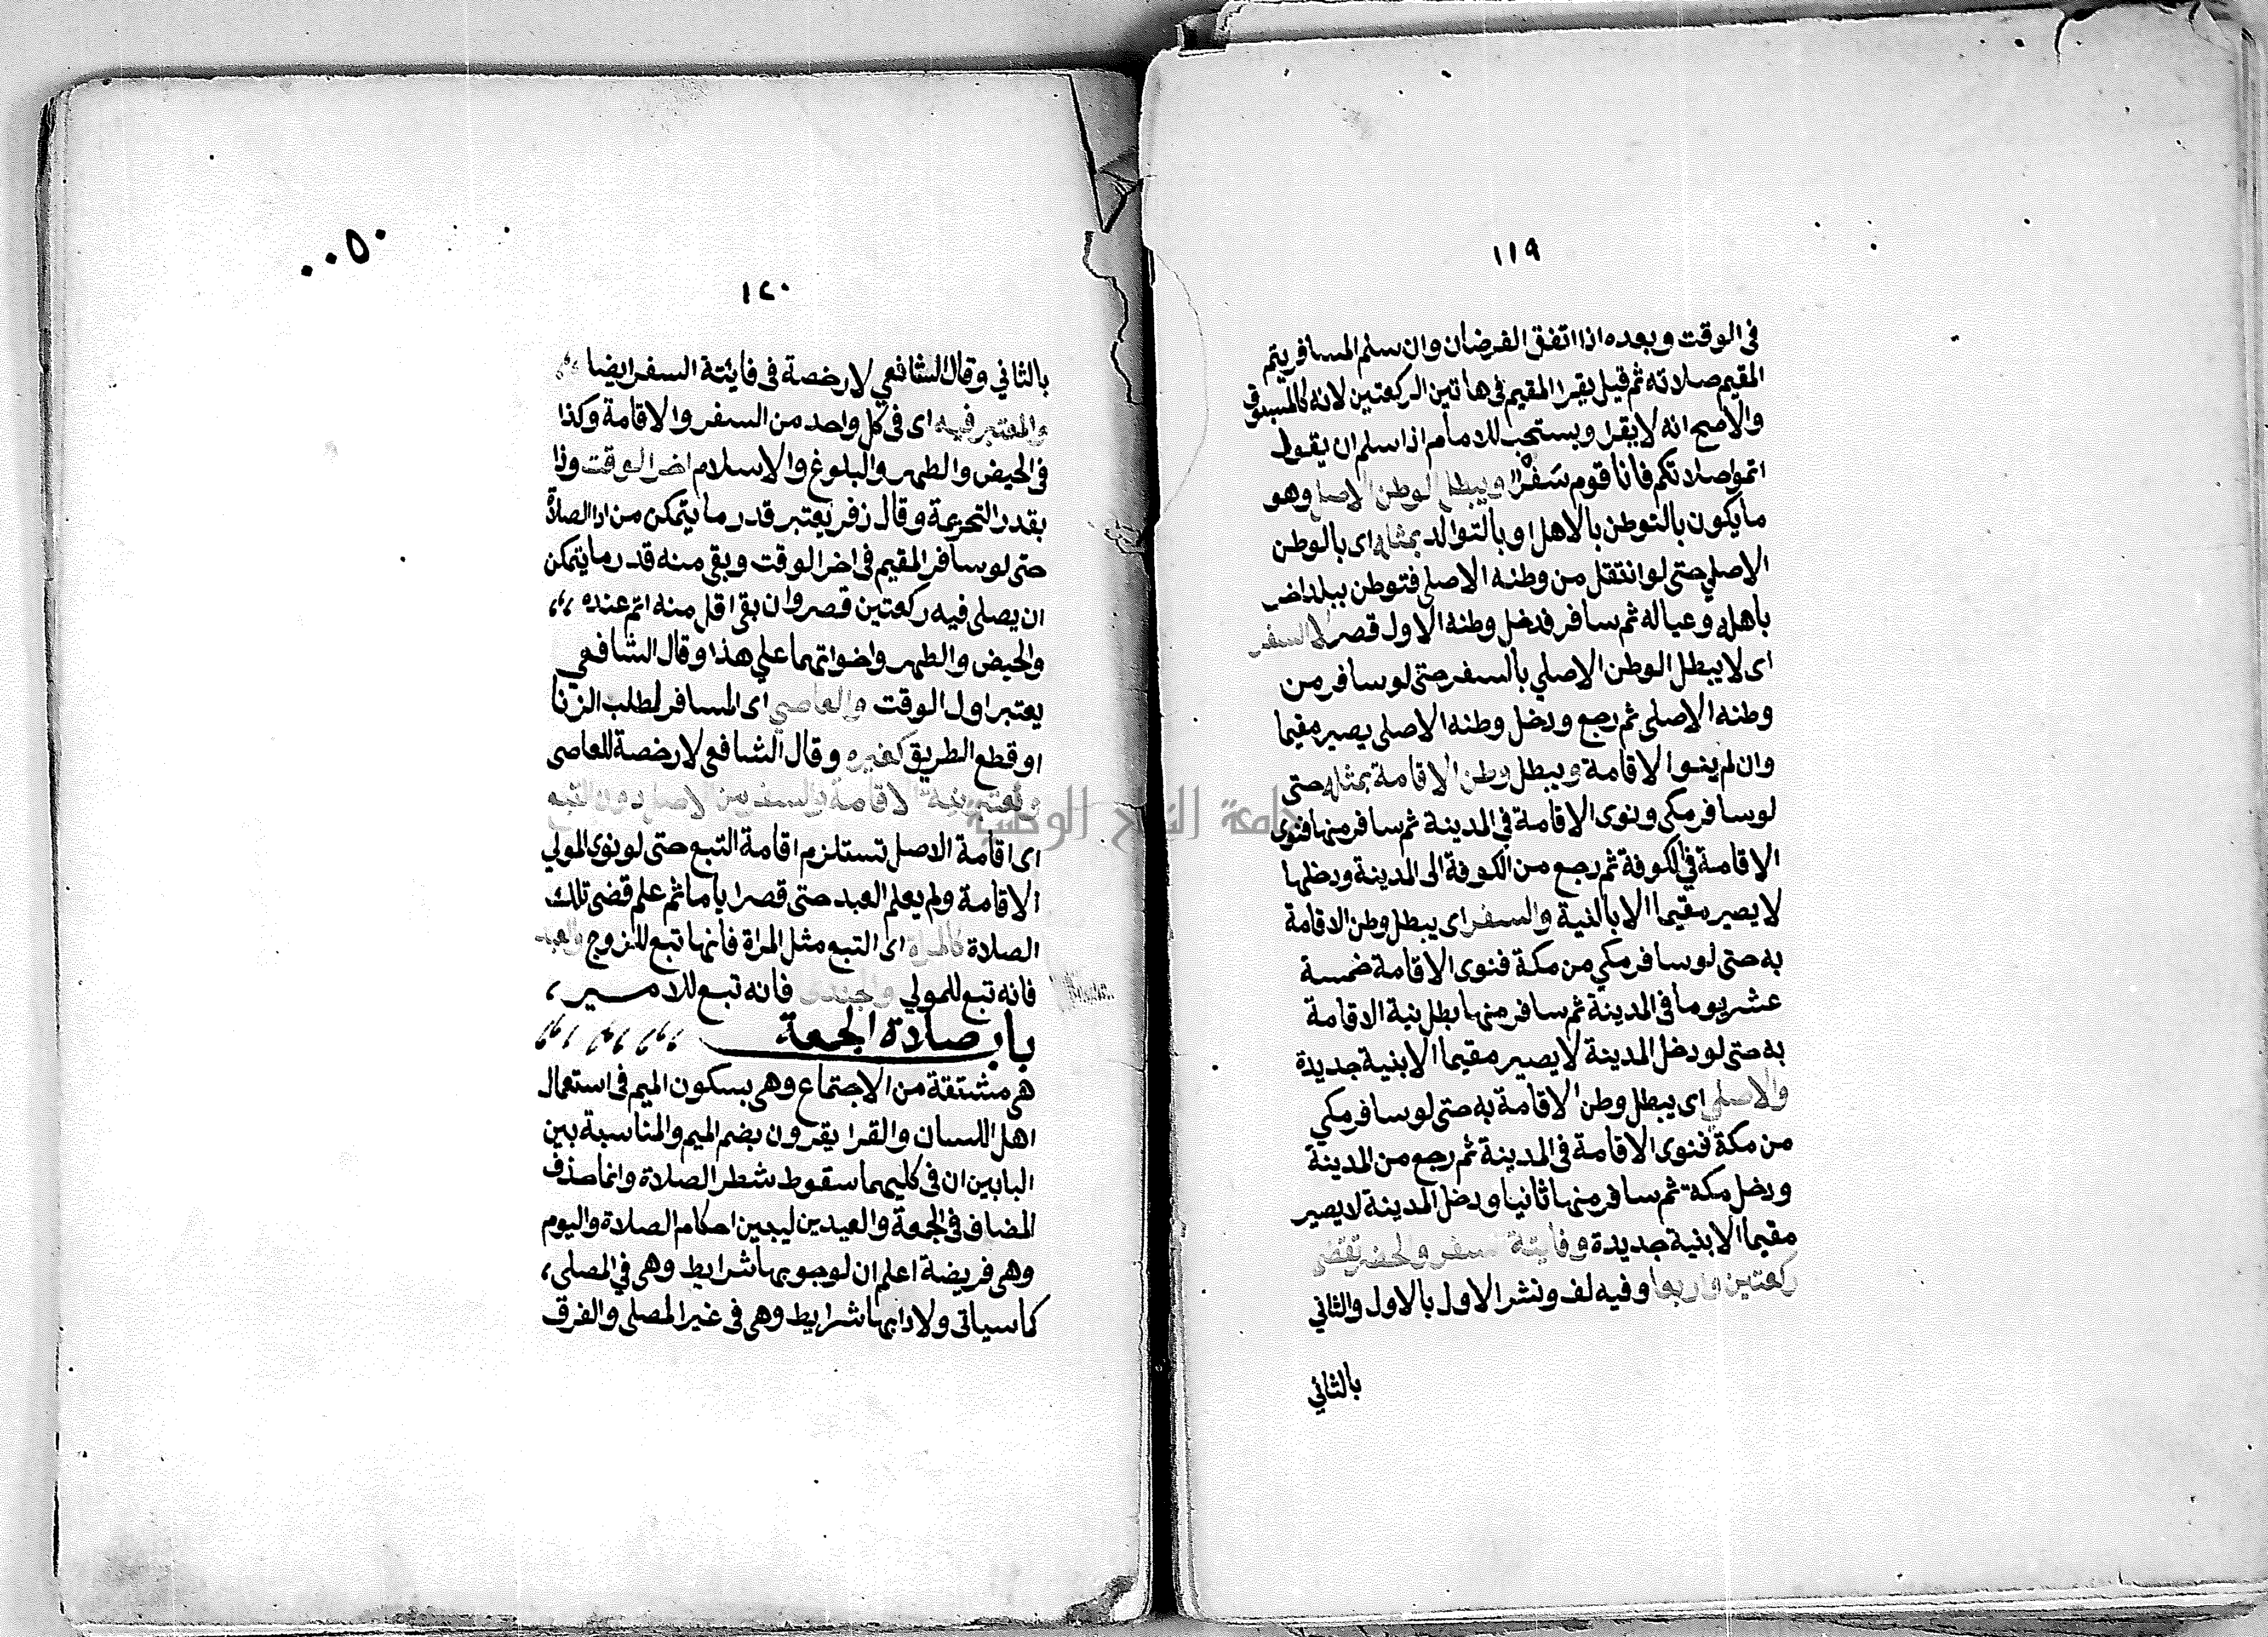 ١١٩
فى الوقت وبعده اذا اتفق الفرضان وان سلم المسافر يتم
المقيم صلاته ثم قيل يقرا المقيم فى هاتين الركعتين لانه كالمسبوق
والاصح انه لا يقرا ويستحب للامام اذا سلم ان يقول
اتموا صلاتكم فانا قوم سَفْرٌ ويبطل الوطن الاصلى وهو
ما يكون بالتوطن بالاهل او بالتوالد بمثله اى بالوطن
الاصلي حتى لو انتقل من وطنه الاصلى فتوطن ببلد اخر
باهله وعياله ثم سافر فدخل وطنه الاول قصر لا السفر
اى لا يبطل الوطن الاصلي بالسفر حتى لو سافر من
وطنه الاصلى ثم رجع ودخل وطنه الاصلى يصير مقيما
وان لم ينوا الاقامة ويبطل وطن الاقامة بمثله حتى
لو سافر مكى ونوى الاقامة في المدينة ثم سافر منها فنوى
الاقامة في الكوفة ثم رجع من الكوفة الى المدينة ودخلها
لا يصير مقيما الا بالنية والسفر اى يبطل وطن الاقامة
به حتى لو سافر مكي من مكة فنوى الاقامة خمسة
عشر يوما فى المدينة ثم سافر منها بطل نية الاقامة
به حتى لو دخل المدينة لا يصير مقيما الا بنية جديدة
والاصلي اى يبطل وطن الاقامة به حتى لو سافر مكي
من مكة فنوى الاقامة فى المدينة ثم رجع من المدينة
ودخل مكة ثم سافر منها ثانيا ودخل المدينة لا يصير
مقيما الا بنية جديدة وفايتة السفر والحضر تقضى
ركعتين واربعا وفيه لف ونشر الاول بالاول والثاني
بالثاني
٠٠٥٠
١٢٠
بالثاني وقال الشافعي لا رخصة فى فايتة السفر ايضا
والمعتبر فيه اى فى كل واحد من السفر والاقامة وكذا
فى الحيض والطهر والبلوغ والاسلام اخر الوقت وذا
بقدر التحريمة وقال زفر يعتبر قدر ما يتمكن من ادا الصلاة
حتى لو سافر المقيم فى اخر الوقت وبقى منه قدر ما يتمكن
ان يصلى فيه ركعتين قصر وان بقى اقل منه اتم عنده
والحيض والطهر واخواتهما علي هذا وقال الشافعي
يعتبر اول الوقت والعاصي اى المسافر لطلب الزنا
او قطع الطريق كغيره وقال الشافعى لا رخصة للعاصى
وتعتبر نية الاقامة والسفر من الاصل دون التبع
اى اقامة الاصل تستلزم اقامة التبع حتى لو نوى المولي
الاقامة ولم يعلم العبد حتى قصر اياما ثم علم قضى تلك
الصلاة كالمراة اى التبع مثل المراة فانها تبع للزوج والعبد
فانه تبع للمولي والجندى فانه تبع للامير
باب صلاة الجمعة
هى مشتقة من الاجتماع وهى بسكون الميم فى استعمال
اهل اللسان والقرا يقرون بضم الميم والمناسبة بين
البابين ان فى كليهما سقوط شطر الصلاة وانما حذف
المضاف فى الجمعة والعيدين ليبين احكام الصلاة واليوم
وهى فريضة اعلم ان لوجوبها شرايط وهى في المصلى
كما سياتى ولادايها شرايط وهى فى غير المصلى والفرق
جامعة النجاح الوطنية